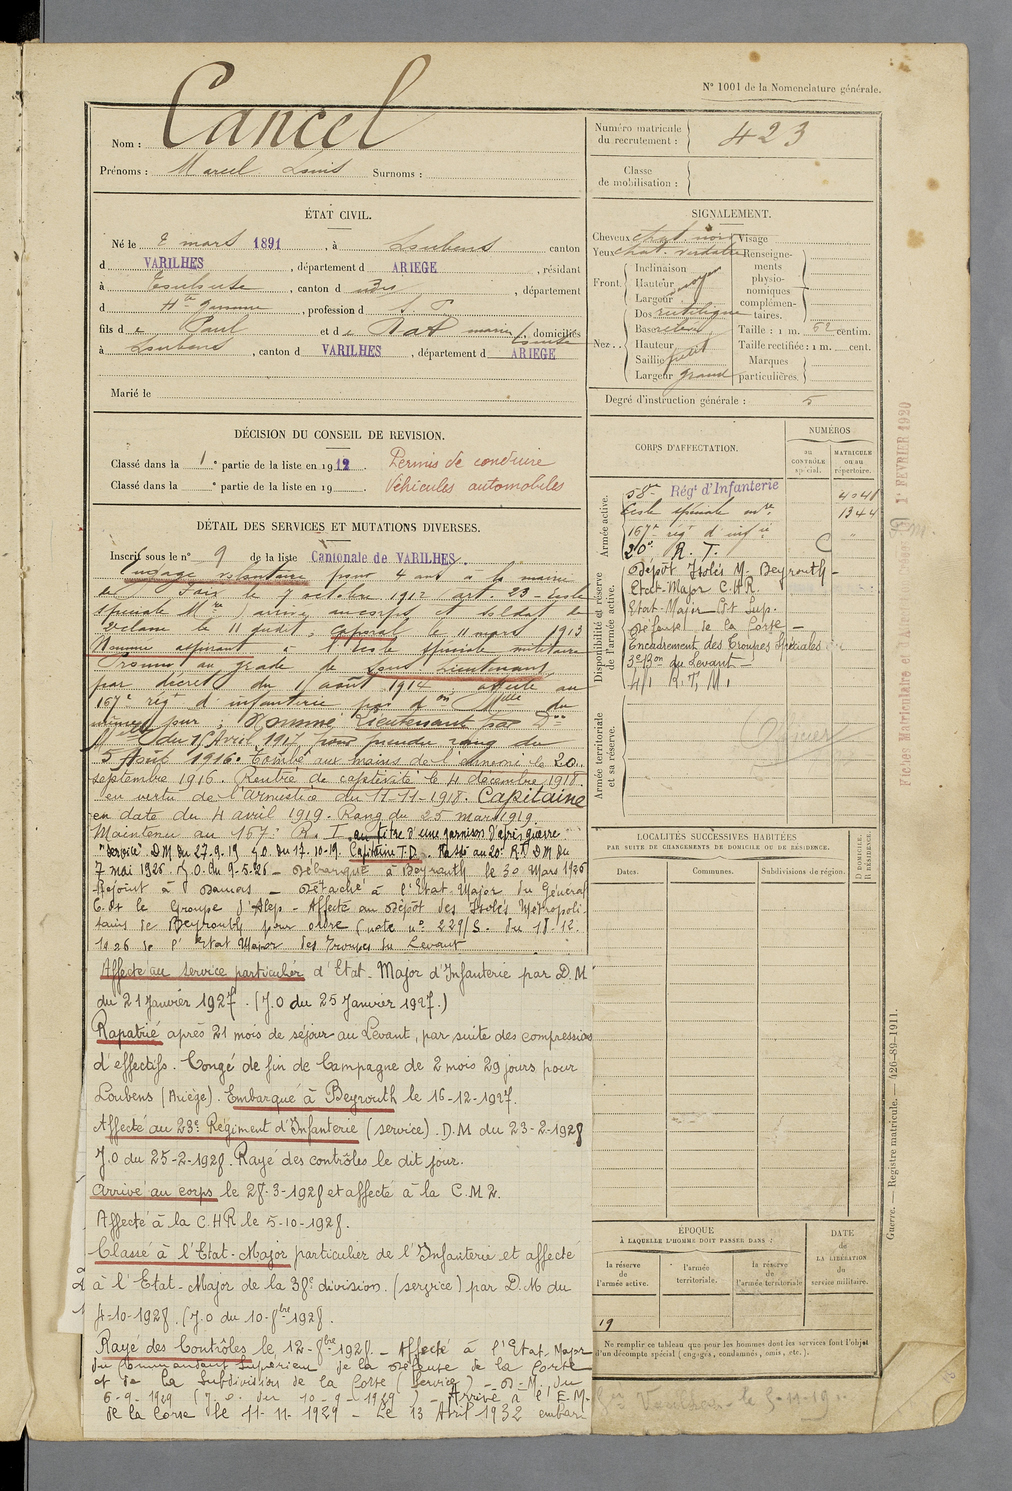 N° 1001 de la Nomenclature générale.
Nom : Cancel
Prénoms : Marcel Louis Surnoms :
Numéro matricule du recrutement : 423
Classe de mobilisation :
ÉTAT CIVIL.
Né le 2 mars 1891, à Loubens canton
d VARILHES, département d ARIEGE, résidant
à Toulouse, canton d , département
d Hte Garonne, profession d
fils de Paul et de , domiciliés
à Loubens, canton d VARILHES, département d ARIEGE
Marié le
SIGNALEMENT.
Cheveux chat. noir
Yeux chat. verdatre
Front. Inclinaison
Hauteur moyen
Largeur
Nez.. Dos rectiligne
Base relevée
Hauteur
Saillie petit
Largeur grand
Visage
Renseignements physionomiques complémentaires.
Taille : 1 m. centim.
Taille rectifiée : 1 m. cent.
Marques particulières.
Degré d'instruction générale : 5
DÉCISION DU CONSEIL DE REVISION.
Classé dans la 1e partie de la liste en 1912. Permis de conduire
Classé dans la e partie de la liste en 19 . Véhicules automobiles
DÉTAIL DES SERVICES ET MUTATIONS DIVERSES.
Inscrit sous le n° 9 de la liste Cantonale de VARILHES.
Engagé volontaire pour 4 ans à la mairie
de le 7 octobre 1912 art. 23 - Ecole
spéciale Mre) arrivé au corps et soldat de
2e classe le 11 , Caporal le 11 mars 1913
Nommé aspirant à l'école spéciale militaire
Promu au grade de Sous Lieutenant
par décret du 1 août 1914, affecté au
167e régt d'infanterie par du
même jour ; Nommé Lieutenant par Don
du 15 Avril 1917 pour prendre rang du
5 Août 1916. Tombé aux mains de l'ennemi le 20
septembre 1916. Rentré de captivité le 4 décembre 1918.
en vertu de l'armistice du 11-11-1918. Capitaine
en date du 4 avril 1919. Rang du 25 mars 1919.
Maintenu au 167e R. I au titre d'une garnison d'après guerre
"service" DM du 27.9.19 JO. du 17.10.19. Capitaine T.D. Passé au 20e RT DM du
7 mai 1926. J.O. du 9-5-26 - Débarqué à Beyrouth le 30 Mars 1926
Rejoint à Damas - Détaché à l'Etat-Major du Général
C.dt le Groupe d'Alep - Affecté au Dépôt des Isolés Métropoli-
tains de Beyrouth pour ordre (note n° 229/S. du 18-12.
1926 de l'Etat Major des Troupes du Levant
Affecté au service particulier d'Etat-Major d'Infanterie par D.M
du 21 Janvier 1927. (J.O du 25 Janvier 1927.)
Rapatrié après 21 mois de séjour au Levant, par suite des compressions
d'effectifs. Congé de fin de Campagne de 2 mois 29 jours pour
Loubens (Ariège). Embarqué à Beyrouth le 16-12-1927.
Affecté au 23e Régiment d'Infanterie (service). D.M du 23-2-1928
J.O du 25-2-1928. Rayé des contrôles le dit jour.
Arrivé au corps le 28-3-1928 et affecté à la C.M 2.
Affecté à la C.H R le 5-10-1928.
Classé à l'Etat-Major particulier de l'Infanterie et affecté
à l'Etat-Major de la 38e division. (service) par D.M du
4-10-1928. (J.O du 10-8bre 1928.
Rayé des Contrôles le 12-8bre 1928. - Affecté à l'Etat Major
du Commandant Supérieur de la Défense de la Corse
et de la Subdivision de la Corse (Service) - D.M. du
6-9-1929 (J.O. du 10-9-1929) - Arrivé à l'E.M.
de la Corse le 11-11-1929 - Le 13 Avril 1932 embar
CORPS D'AFFECTATION.
NUMÉROS
au CONTRÔLE spécial.
MATRICULE ou au répertoire.
Armée active.
58e Régt d'Infanterie 4041
Ecole spéciale mre. 1344
167e régt d'infie "
20e R. T. C
Disponibilité et réserve de l'armée active.
Dépôt Isolés M. Beyrouth -
Etat-Major C.H.R.
Etat-Major Ct Sup.
Défense de la Corse -
Encadrement des Troupes Spéciales
3e Bon du Levant -
41 R.T.M.
Armée territoriale et sa réserve.
Officier
LOCALITÉS SUCCESSIVES HABITÉES
PAR SUITE DE CHANGEMENTS DE DOMICILE OU DE RÉSIDENCE.
Dates. Communes. Subdivisions de région. D DOMICILE. R RÉSIDENCE.
ÉPOQUE
À LAQUELLE L'HOMME DOIT PASSER DANS :
la réserve de l'armée active.
l'armée territoriale.
la réserve de l'armée territoriale
DATE de LA LIBÉRATION du service militaire.
19
Ne remplir ce tableau que pour les hommes dont les services font l'objet
d'un décompte spécial (engagés, condamnés, omis, etc.).
Fiches Matriculaire et d'Adresse
1r FEVRIER 1920
Guerre. — Registre matricule. — 426-89-1911.